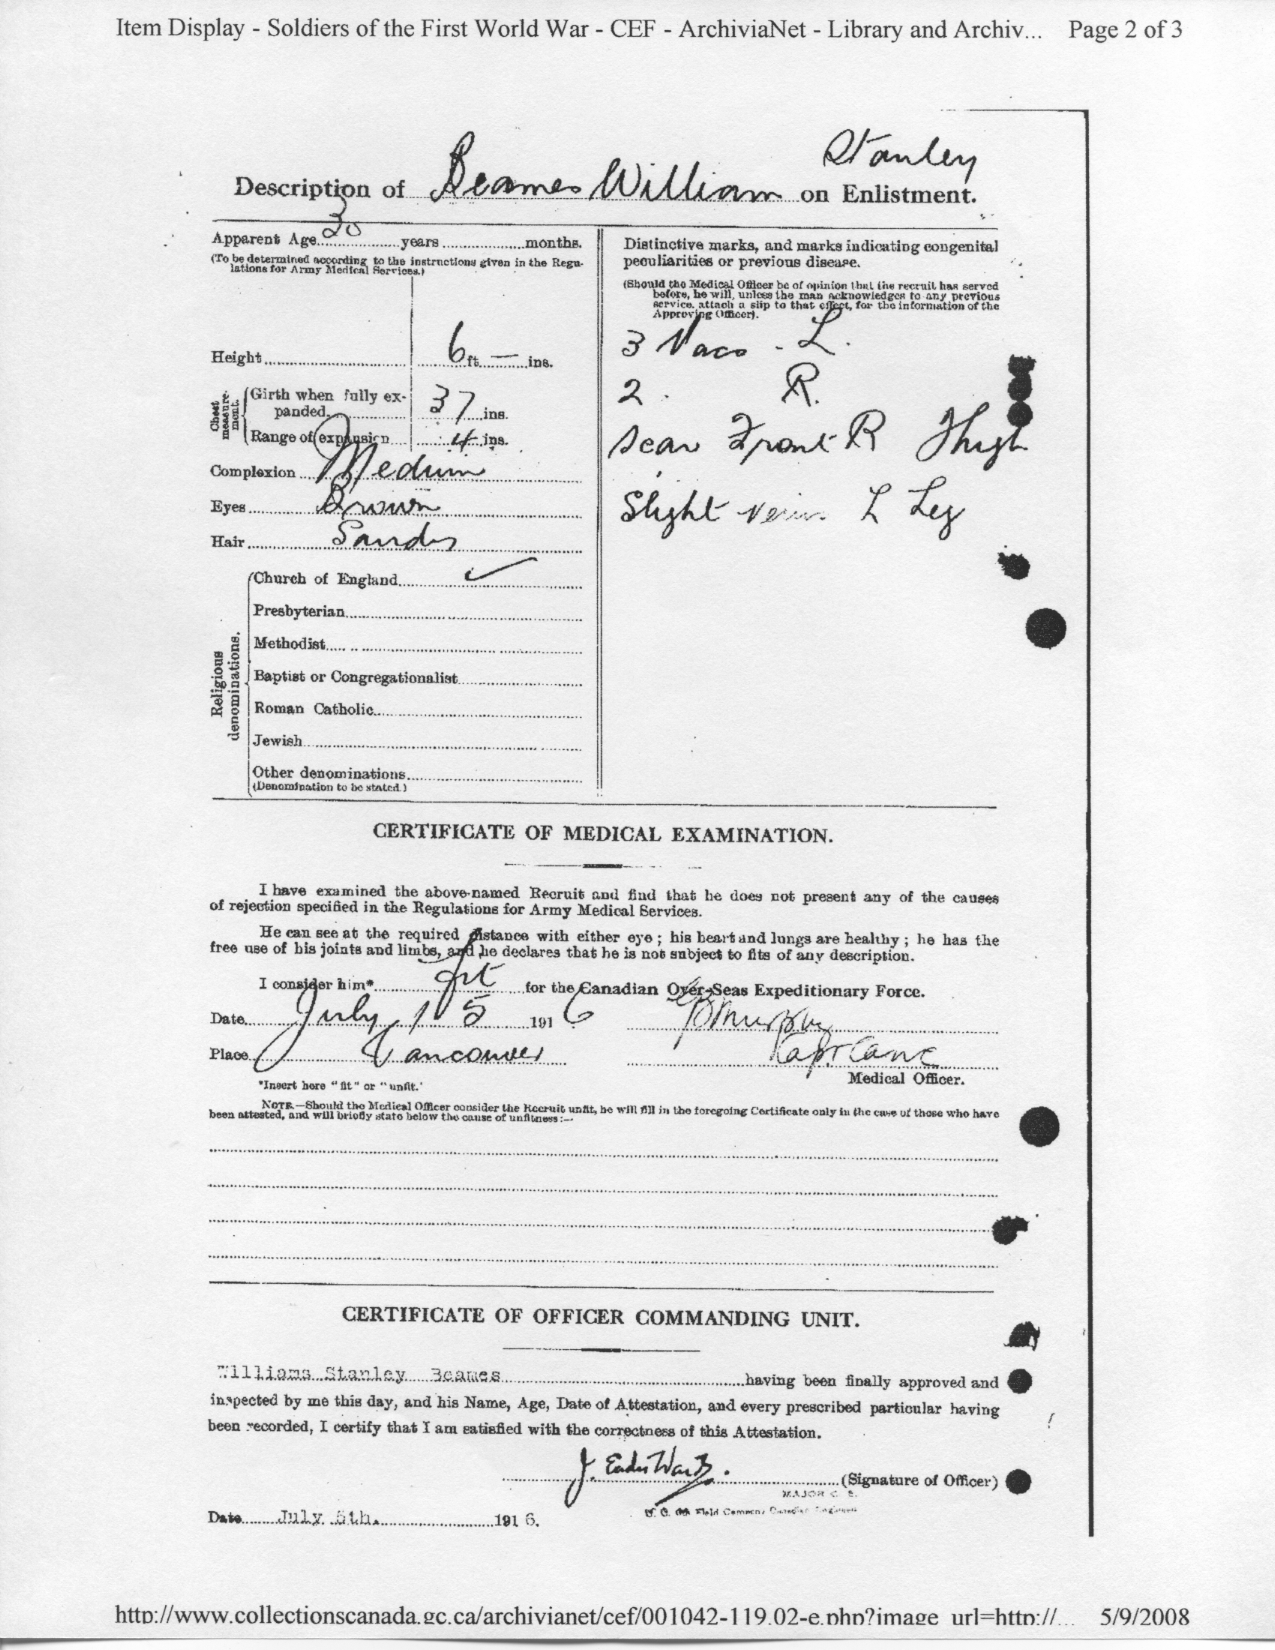 Item Display - Soldiers of the First World War - CEF - ArchiviaNet - Library and Archiv... Page 2 of 3
Stanley
Description of Beames William on Enlistment.
Apparent Age 30 years months.
(To be determined according to the instructions given in the Regu-
lations for Army Medical Services.)
Height 6 ft. — ins.
Chest measure-ment.
Girth when fully ex-
panded 37 ins.
Range of expansion 4 ins.
Complexion Medium
Eyes Brown
Hair Sandy
Religious denominations.
Church of England ✓
Presbyterian
Methodist
Baptist or Congregationalist
Roman Catholic
Jewish
Other denominations
(Denomination to be stated.)
Distinctive marks, and marks indicating congenital
peculiarities or previous disease.
(Should the Medical Officer be of opinion that the recruit has served
before, he will, unless the man acknowledges to any previous
service, attach a slip to that effect, for the information of the
Approving Officer).
3 Vacs - L.
2 . R.
Scar Front R Thigh
Slight vein L Leg
CERTIFICATE OF MEDICAL EXAMINATION.
I have examined the above-named Recruit and find that he does not present any of the causes
of rejection specified in the Regulations for Army Medical Services.
He can see at the required distance with either eye; his heart and lungs are healthy; he has the
free use of his joints and limbs, and he declares that he is not subject to fits of any description.
I consider him* fit for the Canadian Over-Seas Expeditionary Force.
Date July 5 1916
Murphy
Place Vancouver
Capt CAMC
Medical Officer.
*Insert here "fit" or "unfit."
NOTE.—Should the Medical Officer consider the Recruit unfit, he will fill in the foregoing Certificate only in the case of those who have
been attested, and will briefly state below the cause of unfitness:—
CERTIFICATE OF OFFICER COMMANDING UNIT.
Williams Stanley Beames having been finally approved and
inspected by me this day, and his Name, Age, Date of Attestation, and every prescribed particular having
been recorded, I certify that I am satisfied with the correctness of this Attestation.
J. (Signature of Officer)
MAJOR C. E.
O. C. Field Company Canadian Engineers
Date July 5th. 1916.
http://www.collectionscanada.gc.ca/archivianet/cef/001042-119.02-e.php?image_url=http://... 5/9/2008